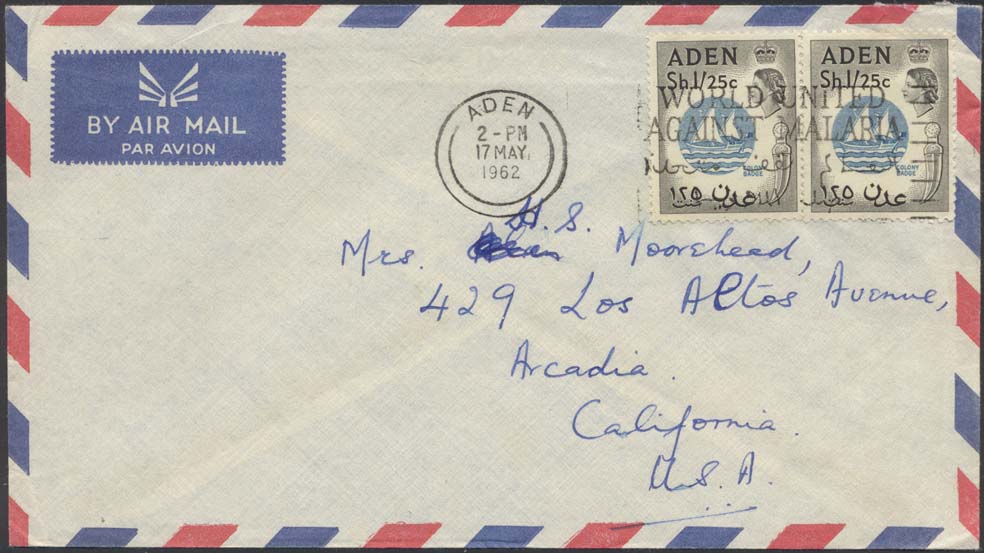 BY AIR MAIL
PAR AVION
ADEN
2-PM
17 MAY
1962
ADEN
Sh.1/25c
COLONY
BADGE
عدن ١٢٥
ADEN
Sh.1/25c
COLONY
BADGE
عدن ١٢٥
WORLD UNITED
AGAINST MALARIA
H.S.
Mrs. Moorehead,
429 Los Altos Avenue,
Arcadia.
California.
U.S.A.